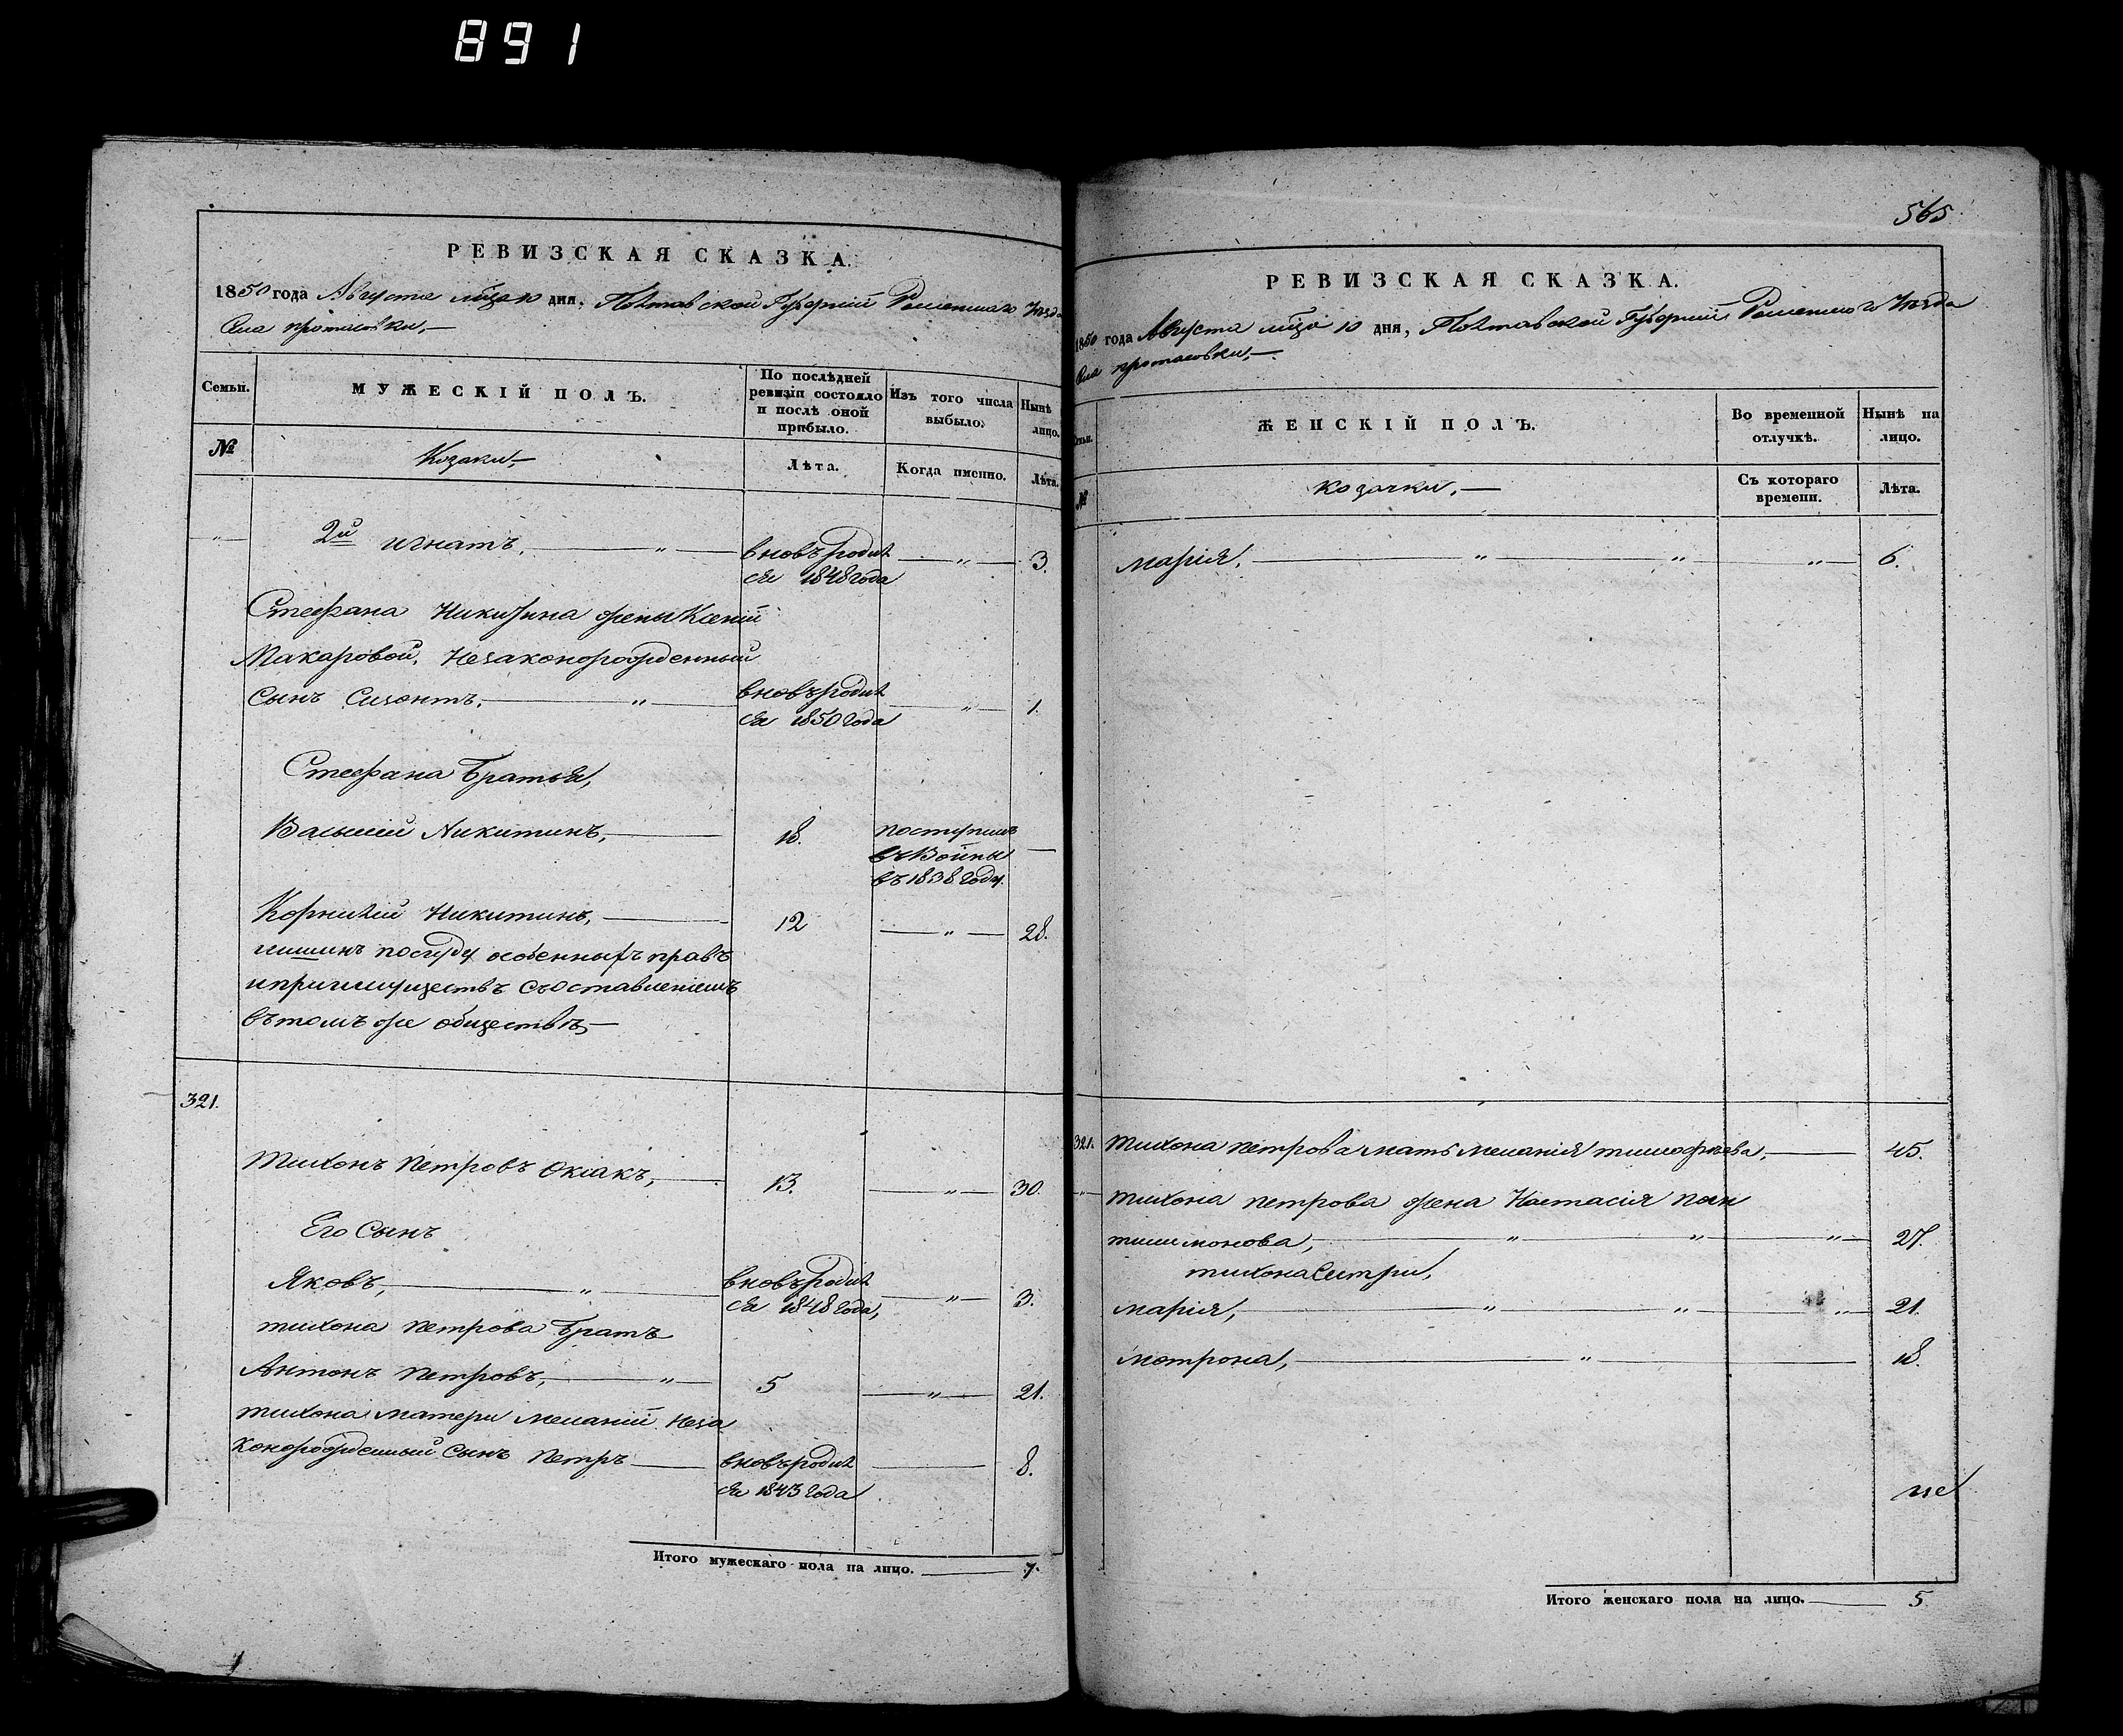 891
РЕВИЗСКАЯ СКАЗКА.
1850 года Августа мѣца 10 дня, Полтавской Губерніи Роменскаго Уѣзда
Села протасовки,
Семьи.
МУЖЕСКІЙ ПОЛЪ.
По послѣдней ревизіи состояло и послѣ оной прибыло.
Изъ того числа выбыло.
Нынѣ на лицо.
№
Козаки,
Лѣта.
Когда именно.
Лѣта.
2й игнатъ, вновь родил 3.
ся 1848 года
Стефана Никитина жены Ксеніи
Макаровой, незаконорожденный
сынъ Сизонтъ, вновь родил 1.
ся 1850 года
Стефана Братья,
Василий Никитинъ, 18. поступилъ
въ Войны
въ 1838 году.
Корнилий Никитинъ, 12 28.
лишинъ посуду особенныхъ правъ
и примиуществъ съ оставленіемъ
въ томъ же обществѣ,
321.
Тихонъ Петровъ Окіакъ, 13. 30.
Его Сынъ
Яковъ, вновь родил 3.
ся 1848 года,
тихона петрова Братъ
Антонъ Петровъ, 5 21.
тихона матери меланіи неза
конорожденный сынъ Петръ вновь родил 8.
ся 1843 года
Итого мужескаго пола на лицо. 7.
565
РЕВИЗСКАЯ СКАЗКА.
1850 года Августа мѣца 10 дня, Полтавской Губерніи Роменскаго Уѣзда
Села протасовки,
Семьи.
ЖЕНСКІЙ ПОЛЪ.
Во временной отлучкѣ.
Нынѣ на лицо.
№
козачки,
Съ котораго времени.
Лѣта.
марія, 6.
321. тихона петрова мать меланія тимофѣева, 45.
тихона петрова жена Настасія пан
тилимонова, 27.
тихона Сестри,
марія, 21.
мотрона, 18.
Итого женскаго пола на лицо. 5